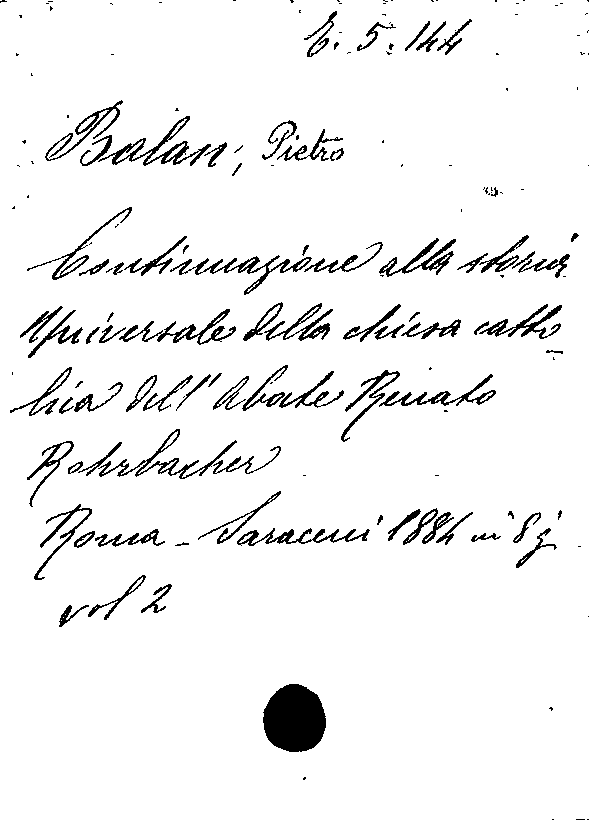 E. 5. 144
Balan, Pietro
Continuazione alla storia
Universale della chiesa catto
lica dell' Abate Renato
Rohrbacher
Roma - Saraceni 1884 in 8º
vol 2